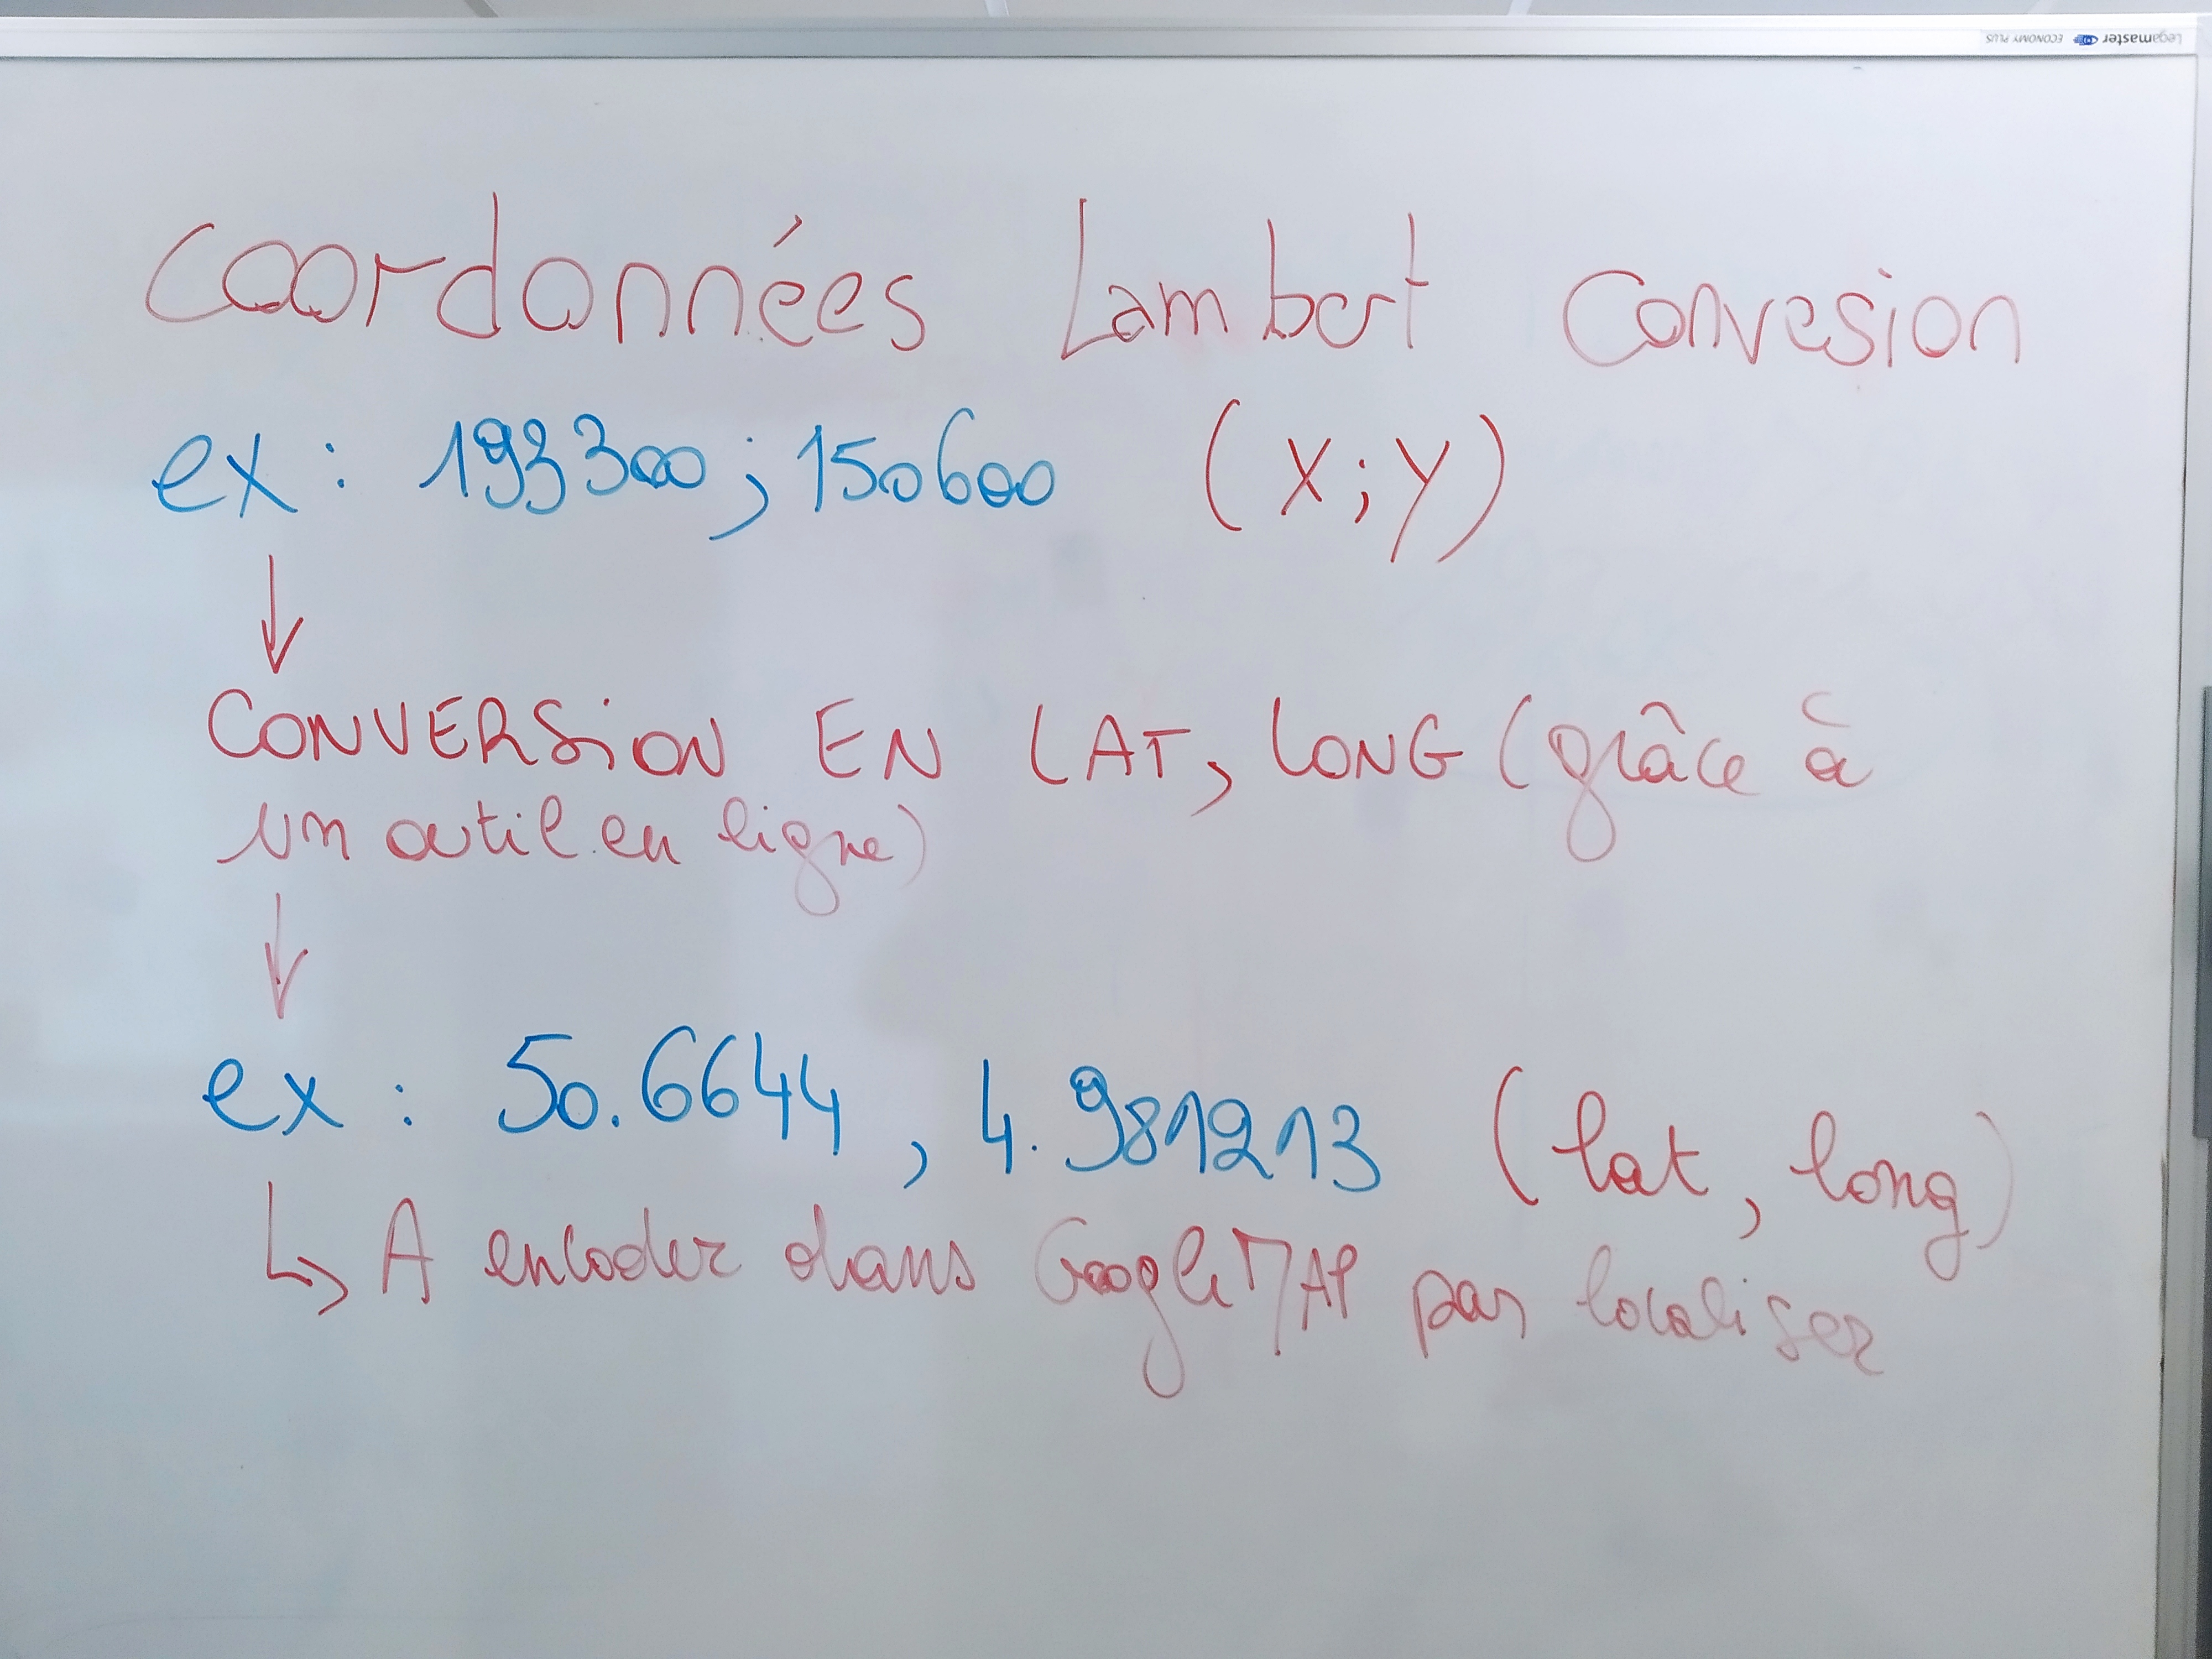 Legamaster ECONOMY PLUS
Coordonnées Lambert Convesion
ex : 193300 ; 150600 (X ; Y)
CONVERSiON EN LAT, LONG (grâce à
un outil en ligne)
ex : 50.6644 , 4.981213 (lat, long)
A encoder dans Google MAP par localiser